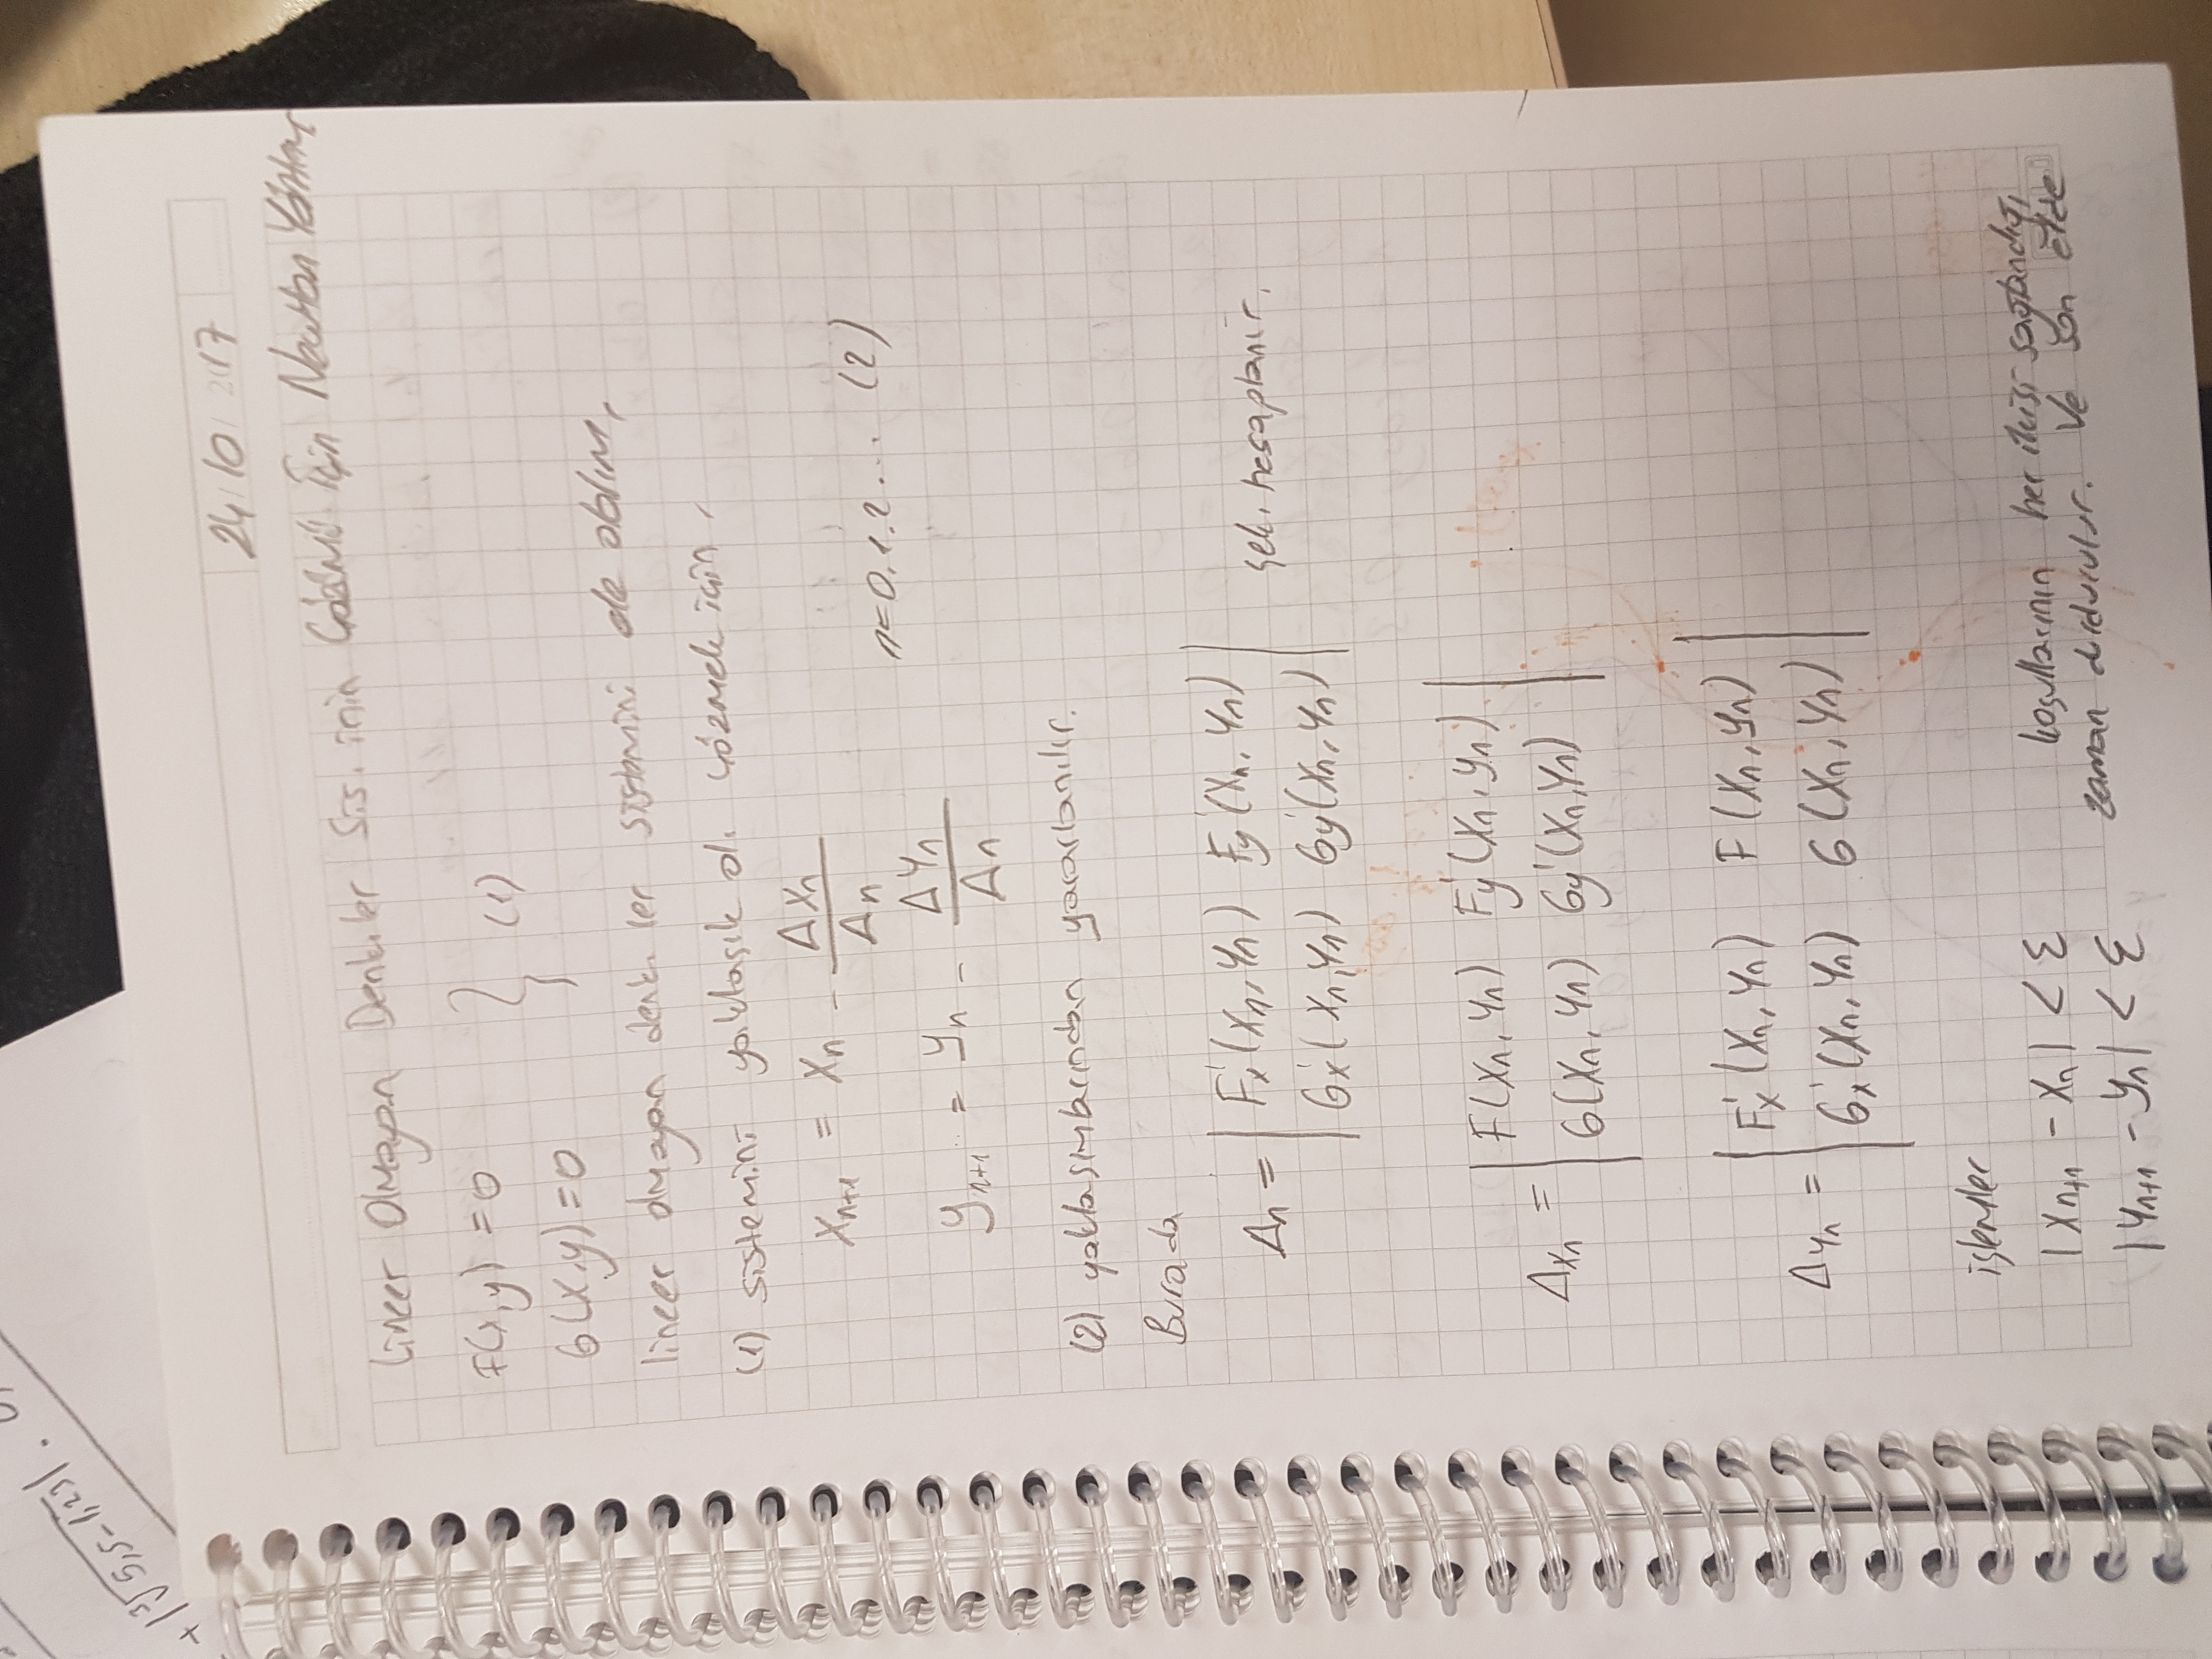 + |∛5,5-1,23| .
24/10/2017
Lineer Olmayan Denk.ler Sis.inin Çözümü İçin Newton Yöntemi
F(x,y) = 0
G(x,y) = 0 } (1)
lineer olmayan denk.ler sistemini ele alalım,
(1) sistemini yaklaşık ol. çözmek için,
xₙ₊₁ = xₙ - Δxₙ / Δₙ
n=0,1,2... (2)
yₙ₊₁ = yₙ - Δyₙ / Δₙ
(2) yaklaşımlarından yararlanılır.
Burada
Δₙ = | Fₓ'(xₙ,yₙ) Fy'(xₙ,yₙ) |
| Gₓ'(xₙ,yₙ) Gy'(xₙ,yₙ) | şek. hesaplanır.
Δxₙ = | F(xₙ,yₙ) Fy'(xₙ,yₙ) |
| G(xₙ,yₙ) Gy'(xₙ,yₙ) |
Δyₙ = | Fₓ'(xₙ,yₙ) F(xₙ,yₙ) |
| Gₓ'(xₙ,yₙ) G(xₙ,yₙ) |
işlemler
|xₙ₊₁ - xₙ| < ε koşullarının her ikisi sağlandığı
|yₙ₊₁ - yₙ| < ε zaman durdurulur. Ve son elde